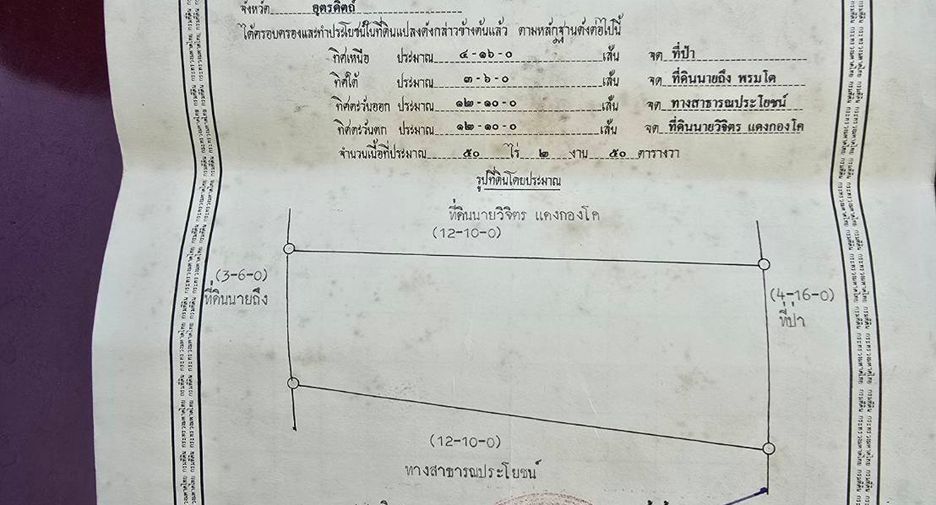 จังหวัด อุตรดิตถ์
ได้ครอบครองและทำประโยชน์ในที่ดินแปลงดังกล่าวข้างต้นแล้ว ตามหลักฐานดังต่อไปนี้
ทิศเหนือ ประมาณ ๔-๑๖-๐ เส้น จด ที่ป่า
ทิศใต้ ประมาณ ๓-๖-๐ เส้น จด ที่ดินนายถึง พรมโต
ทิศตะวันออก ประมาณ ๑๒-๑๐-๐ เส้น จด ทางสาธารณประโยชน์
ทิศตะวันตก ประมาณ ๑๒-๑๐-๐ เส้น จด ที่ดินนายวิจิตร แดงกองโค
จำนวนเนื้อที่ประมาณ ๕๐ ไร่ ๒ งาน ๕๐ ตารางวา
รูปที่ดินโดยประมาณ
ที่ดินนายวิจิตร แดงกองโค
(12-10-0)
(3-6-0)
ที่ดินนายถึง
(4-16-0)
ที่ป่า
(12-10-0)
ทางสาธารณประโยชน์